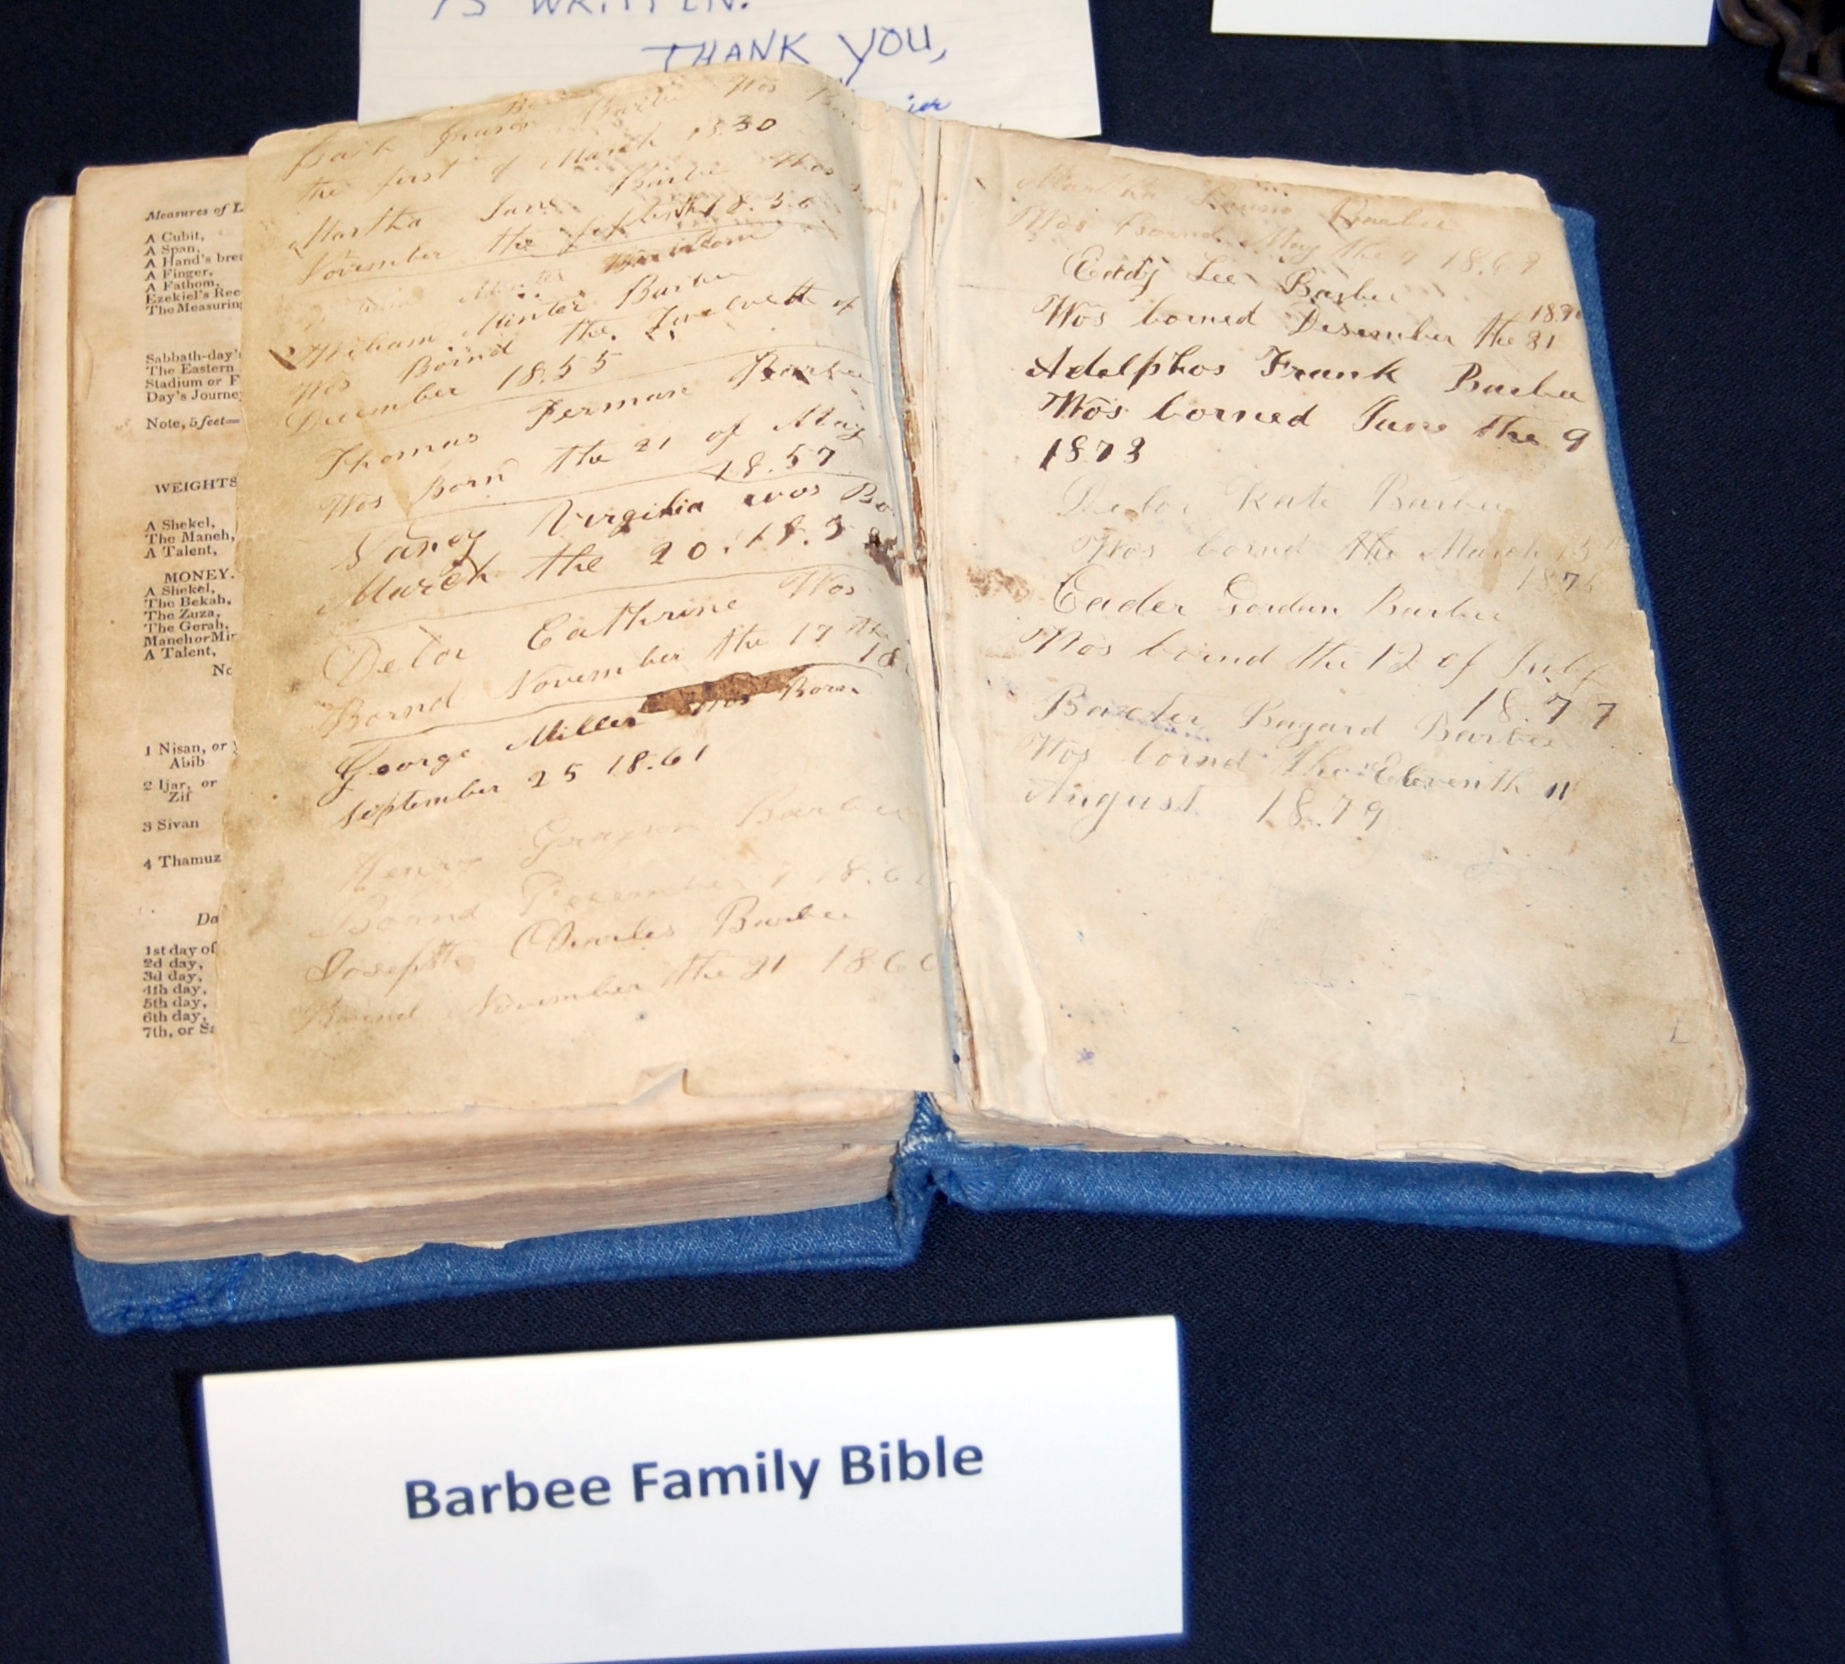 IS WRITTEN.
THANK YOU,
Barbee Was Born
the first of March 18.30
Martha Jane Barbee Was
November the 18.36
William Minter Barbee
Was Bornd the Twelveth of
December 18.55
Thomas Ferman Barbee
Was Born the 21 of May
18.57
Nancy Virginia was Bo
March the 20.18.5
Delor Cathrine Was
Bornd November the 17 the
18
George Miller Was Born
September 25 18.61
Henry Grayson Barbee
Bornd December 18.6
Joseph Charles Barbee
Bornd November the 21 1866
Measures of L
A Cubit,
A Span,
A Hand's brea
A Finger,
A Fathom,
Ezekiel's Ree
The Measuring
Sabbath-day's
The Eastern
Stadium or F
Day's Journey
Note, 5 feet=
WEIGHTS
A Shekel,
The Maneh,
A Talent,
MONEY.
A Shekel,
The Bekah,
The Zuza,
The Gerah,
Maneh or Min
A Talent,
No
1 Nisan, or
Abib
2 Ijar, or
Zif
3 Sivan
4 Thamuz
Da
1st day of
2d day,
3d day,
4th day,
5th day,
6th day,
7th, or Sa
Martha Barbee
Was Bornd May the 18.69
Eddy Lee Barbee
18.70
Was borned Desember the 31
Adelphos Frank Barbee
Was borned June the 9
1873
Delor Kate Barbee
Was bornd the March 15
187
Eader Gordan Barbee
Was bornd the 12 of July
18.77
Baxter Bagard Barbee
Was bornd The Eleventh 11
August 18.79
Barbee Family Bible